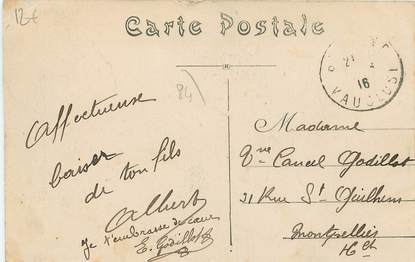 12€
Carte Postale
2
16
VAUCLUSE
84
Affectueuse
baiser
de ton fils
Albert
Je t'embrasse de cœur
E. Godillot
Madame
Vve Cancel Godillot
31 Rue St Guilhem
Montpellier
Hlt